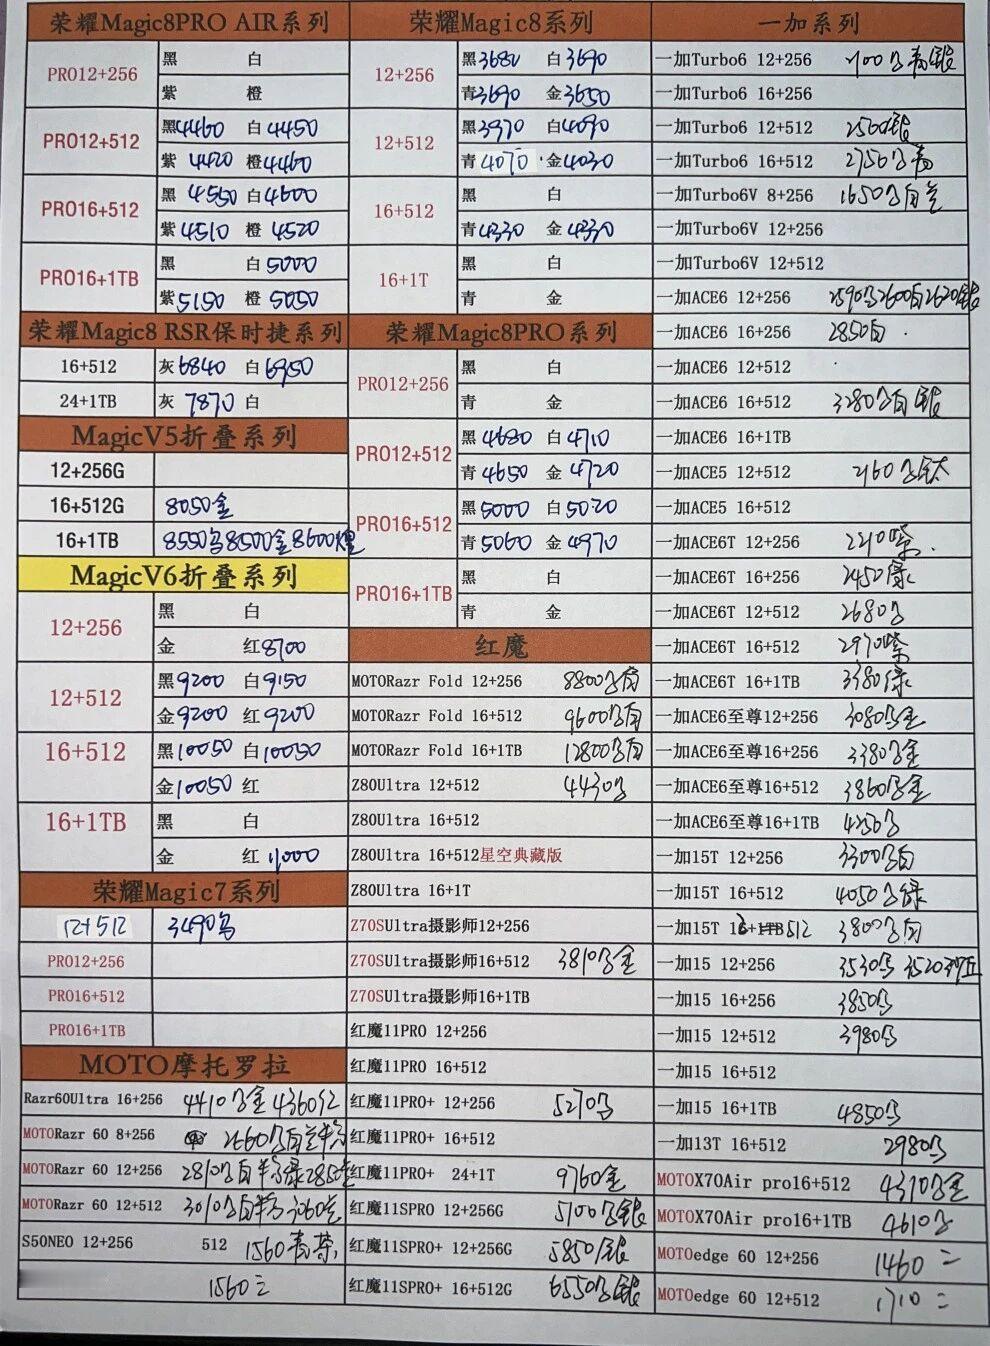 荣耀Magic8PRO AIR系列
PRO12+256 黑 白
紫 橙
PRO12+512 黑4460 白4450
紫4420 橙4460
PRO16+512 黑4550 白4600
紫4510 橙4520
PRO16+1TB 黑 白5000
紫5150 橙5050
荣耀Magic8 RSR保时捷系列
16+512 灰6840 白6950
24+1TB 灰7870 白
MagicV5折叠系列
12+256G
16+512G 8050金
16+1TB 8550 8500金8600
MagicV6折叠系列
12+256 黑 白
金 红8700
12+512 黑9200 白9150
金9200 红9200
16+512 黑10050 白10050
金10050 红
16+1TB 黑 白
金 红11000
荣耀Magic7系列
12+512 3490
PRO12+256
PRO16+512
PRO16+1TB
MOTO摩托罗拉
Razr60Ultra 16+256 4410 金4360红
MOTORazr 60 8+256 2660
MOTORazr 60 12+256 2810 绿2850
MOTORazr 60 12+512 3010 3060
S50NEO 12+256 512 1560青茶
1560三
荣耀Magic8系列
12+256 黑3680 白3690
青3690 金3650
12+512 黑3970 白4090
青4070 金4030
16+512 黑 白
青4330 金4330
16+1T 黑 白
青 金
荣耀Magic8PRO系列
PRO12+256 黑 白
青 金
PRO12+512 黑4680 白4710
青4650 金4720
PRO16+512 黑5000 白5020
青5060 金4970
PRO16+1TB 黑 白
青 金
红魔
MOTORazr Fold 12+256 8800 白
MOTORazr Fold 16+512 9600 白
MOTORazr Fold 16+1TB 12800 白
Z80Ultra 12+512 4430
Z80Ultra 16+512
Z80Ultra 16+512星空典藏版
Z80Ultra 16+1T
Z70SUltra摄影师12+256
Z70SUltra摄影师16+512 3810 金
Z70SUltra摄影师16+1TB
红魔11PRO 12+256
红魔11PRO 16+512
红魔11PRO+ 12+256 5270
红魔11PRO+ 16+512
红魔11PRO+ 24+1T 9760金
红魔11SPRO 12+256G 5100 银
红魔11SPRO+ 12+256G 5850银
红魔11SPRO+ 16+512G 6550 银
一加系列
一加Turbo6 12+256 银
一加Turbo6 16+256
一加Turbo6 12+512 2560银
一加Turbo6 16+512 2750 青
一加Turbo6V 8+256 1650
一加Turbo6V 12+256
一加Turbo6V 12+512
一加ACE6 12+256 2590 2600白2620银
一加ACE6 16+256 2850白
一加ACE6 12+512
一加ACE6 16+512 3280 白银
一加ACE6 16+1TB
一加ACE5 12+512 2160 钛
一加ACE5 16+512
一加ACE6T 12+256 2210紫
一加ACE6T 16+256 2450绿
一加ACE6T 12+512 2680
一加ACE6T 16+512 2970紫
一加ACE6T 16+1TB 3380绿
一加ACE6至尊12+256 3080 金
一加ACE6至尊16+256 3380 金
一加ACE6至尊16+512 3860 金
一加ACE6至尊16+1TB 4250
一加15T 12+256 3300 白
一加15T 16+512 4050 绿
一加15T 512 3800 白
一加15 12+256 3530 3520
一加15 16+256 3850
一加15 12+512 3980
一加15 16+512
一加15 16+1TB 4850
一加13T 16+512 2980
MOTOX70Air pro16+512 4370 金
MOTOX70Air pro16+1TB 4610
MOTOedge 60 12+256 1460 二
MOTOedge 60 12+512 1710 二